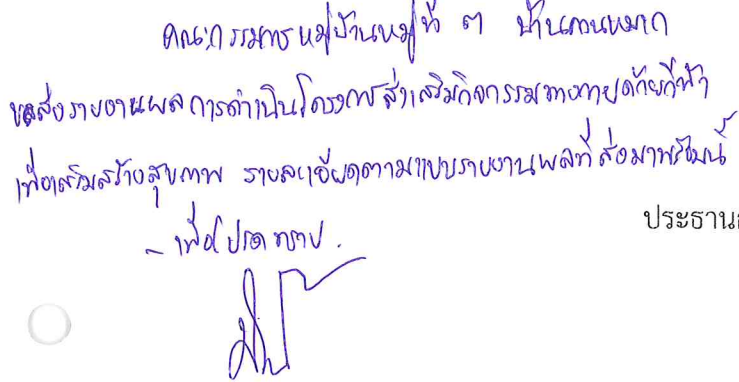 คณะกรรมการหมู่บ้านหมู่ที่ ๓ บ้านควนหมาก
ขอส่งรายงานผลการดำเนินโครงการส่งเสริมกิจกรรมทางกายด้วยกีฬา
เพื่อเสริมสร้างสุขภาพ รายละเอียดตามแบบรายงานผลที่ส่งมาพร้อมนี้
ประธาน
- เพื่อโปรดทราบ.